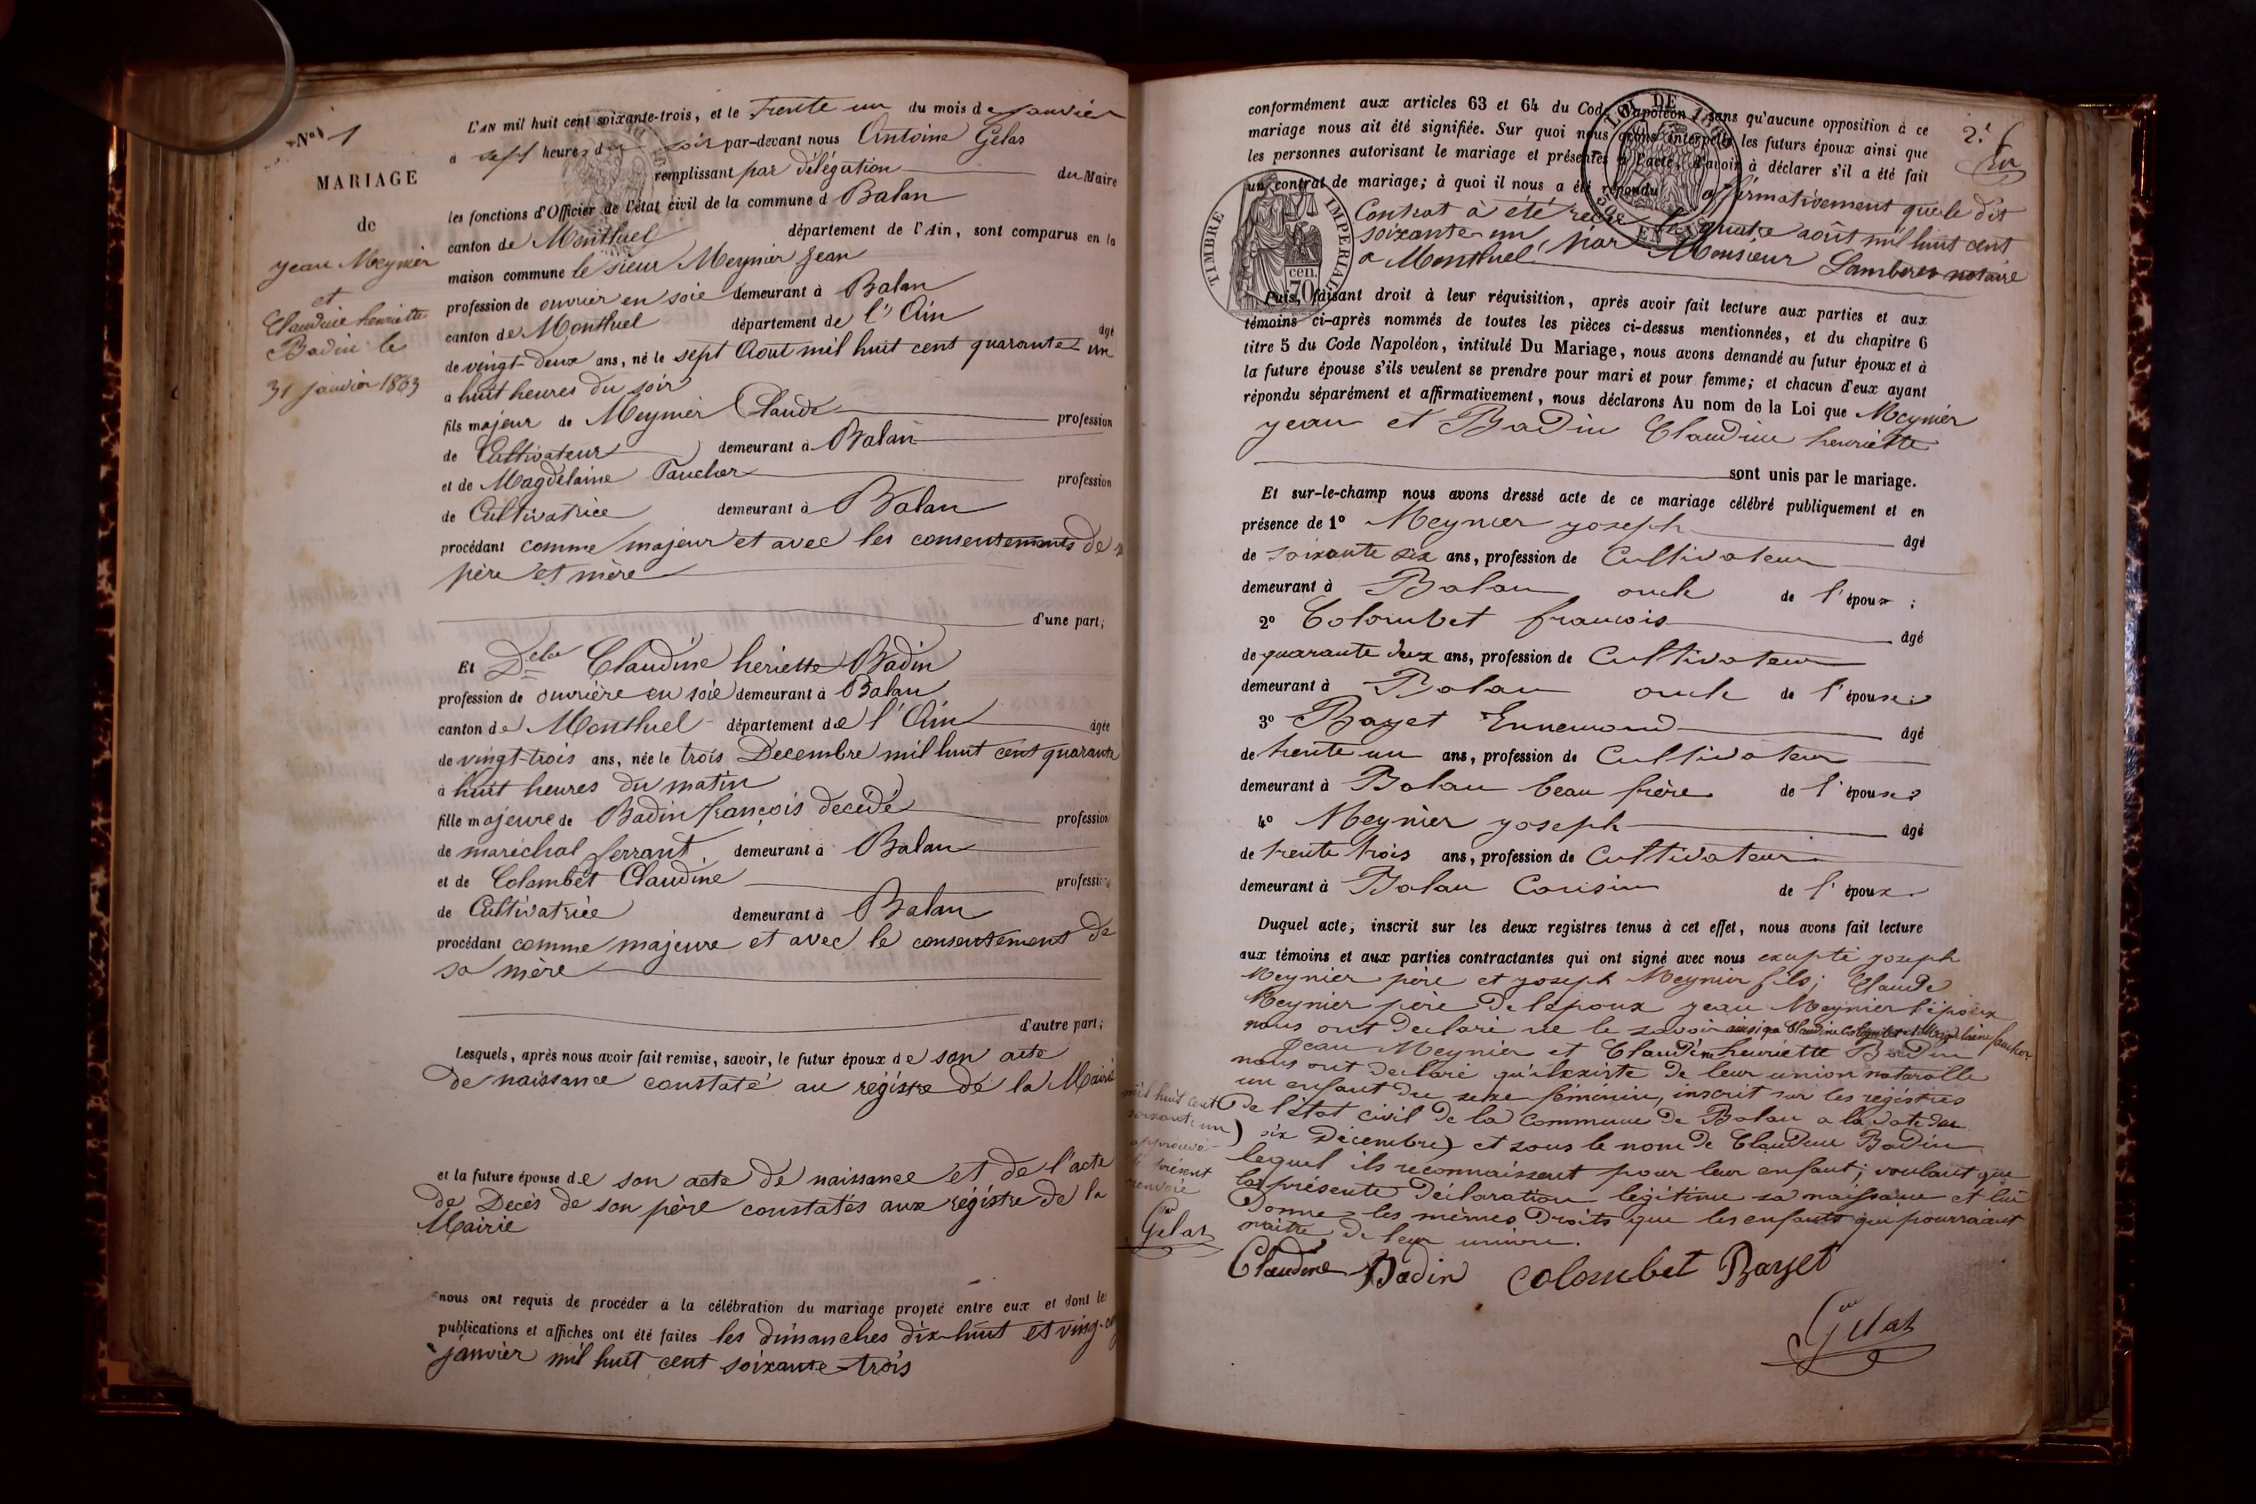 N° 1
MARIAGE
de
Jean Meynier
et
Claudine henriette
Badin le
31 janvier 1863
L'AN mil huit cent soixante-trois, et le Trente un du mois de Janvier
à sept heures du soir par-devant nous Antoine Gelas
remplissant par délégation du Maire
les fonctions d'Officier de l'état civil de la commune d Balan
canton de Montluel département de l'Ain, sont comparus en la
maison commune le sieur Meynier Jean
profession de ouvrier en soie demeurant à Balan
canton de Montluel département de l'Ain âgé
de vingt-deux ans, né le sept Aout mil huit cent quarante un
à huit heures du soir
fils majeur de Meynier Claude profession
de Cultivateur demeurant à Balan
et de Magdelaine Faucher profession
de Cultivatrice demeurant à Balan
procédant comme majeur et avec les consentements de
père et mère
d'une part;
Et Delle Claudine heriette Badin
profession de ouvrière en soie demeurant à Balan
canton de Montluel département de l'Ain âgée
de vingt-trois ans, née le trois Decembre mil huit cent quarante
à huit heures du matin
fille majeure de Badin françois decédé profession
de maréchal ferrant demeurant à Balan
et de Colambet Claudine profession
de Cultivatrice demeurant à Balan
procédant comme majeure et avec le consentement de
sa mère
d'autre part;
Lesquels, après nous avoir fait remise, savoir, le futur époux de son acte
de naissance constaté au régistre de la Mairie
et la future épouse de son acte de naissance et de l'acte
de Decès de son père constatés aux régistre de la
Mairie
nous ont requis de procéder à la célébration du mariage projeté entre eux et dont les
publications et affiches ont été faites les dimanches dix-huit et vingt-
janvier mil huit cent soixante-trois
conformément aux articles 63 et 64 du Code Napoléon, sans qu'aucune opposition à ce
mariage nous ait été signifiée. Sur quoi nous avons interpellé les futurs époux ainsi que
les personnes autorisant le mariage et présentes à l'acte, d'avoir à déclarer s'il a été fait
un contrat de mariage; à quoi il nous a été répondu affirmativement que le dit
Contrat à été reçu le quatre août mil huit cent
soixante-un par Monsieur Lamberes notaire
a Montluel
2.f
TIMBRE IMPERIAL
70 cen.
LOI DE
EN SUS
Puis, faisant droit à leur réquisition, après avoir fait lecture aux parties et aux
témoins ci-après nommés de toutes les pièces ci-dessus mentionnées, et du chapitre 6
titre 5 du Code Napoléon, intitulé Du Mariage, nous avons demandé au futur époux et à
la future épouse s'ils veulent se prendre pour mari et pour femme; et chacun d'eux ayant
répondu séparément et affirmativement, nous déclarons Au nom de la Loi que Meynier
Jean et Badin Claudine henriette
sont unis par le mariage.
Et sur-le-champ nous avons dressé acte de ce mariage célébré publiquement et en
présence de 1° Meynier joseph âgé
de soixante six ans, profession de Cultivateur
demeurant à Balan oncle de l'époux ;
2° Colombet francois âgé
de quarante deux ans, profession de Cultivateur
demeurant à Balan oncle de l'épouse;
3° Bayet Ennemond âgé
de trente un ans, profession de Cultivateur
demeurant à Balan beau frère de l'épouse;
4° Meynier joseph âgé
de trente trois ans, profession de Cultivateur
demeurant à Balan Cousin de l'époux
Duquel acte, inscrit sur les deux registres tenus à cet effet, nous avons fait lecture
aux témoins et aux parties contractantes qui ont signé avec nous exapté joseph
Meynier père et joseph Meynier fils; Claude
Meynier père De lépoux jean Meynier l'époux
nous ont declaré ne le savoir ainsi que Claudine Colombet et Magdelaine faucher
Jean Meynier et Claudine henriette Badin
nous ont declaré qu'il existe de leur union naturelle
un enfant du sexe féminin, inscrit sur les registres
De l'état civil De la Commune de Balan a la date du
six Décembre) et sous le nom de Claudine Badin
lequel ils reconnaissent pour leur enfant; voulant que
la présente Déclaration légitime sa naissance et lui
Donne les mêmes Droits que les enfants qui pourraient
naitre de leur union.
mil huit cent
soixante un)
approuvé
le présent
renvoie
Gelas
Claudine Badin Colombet Bayet
Gelas